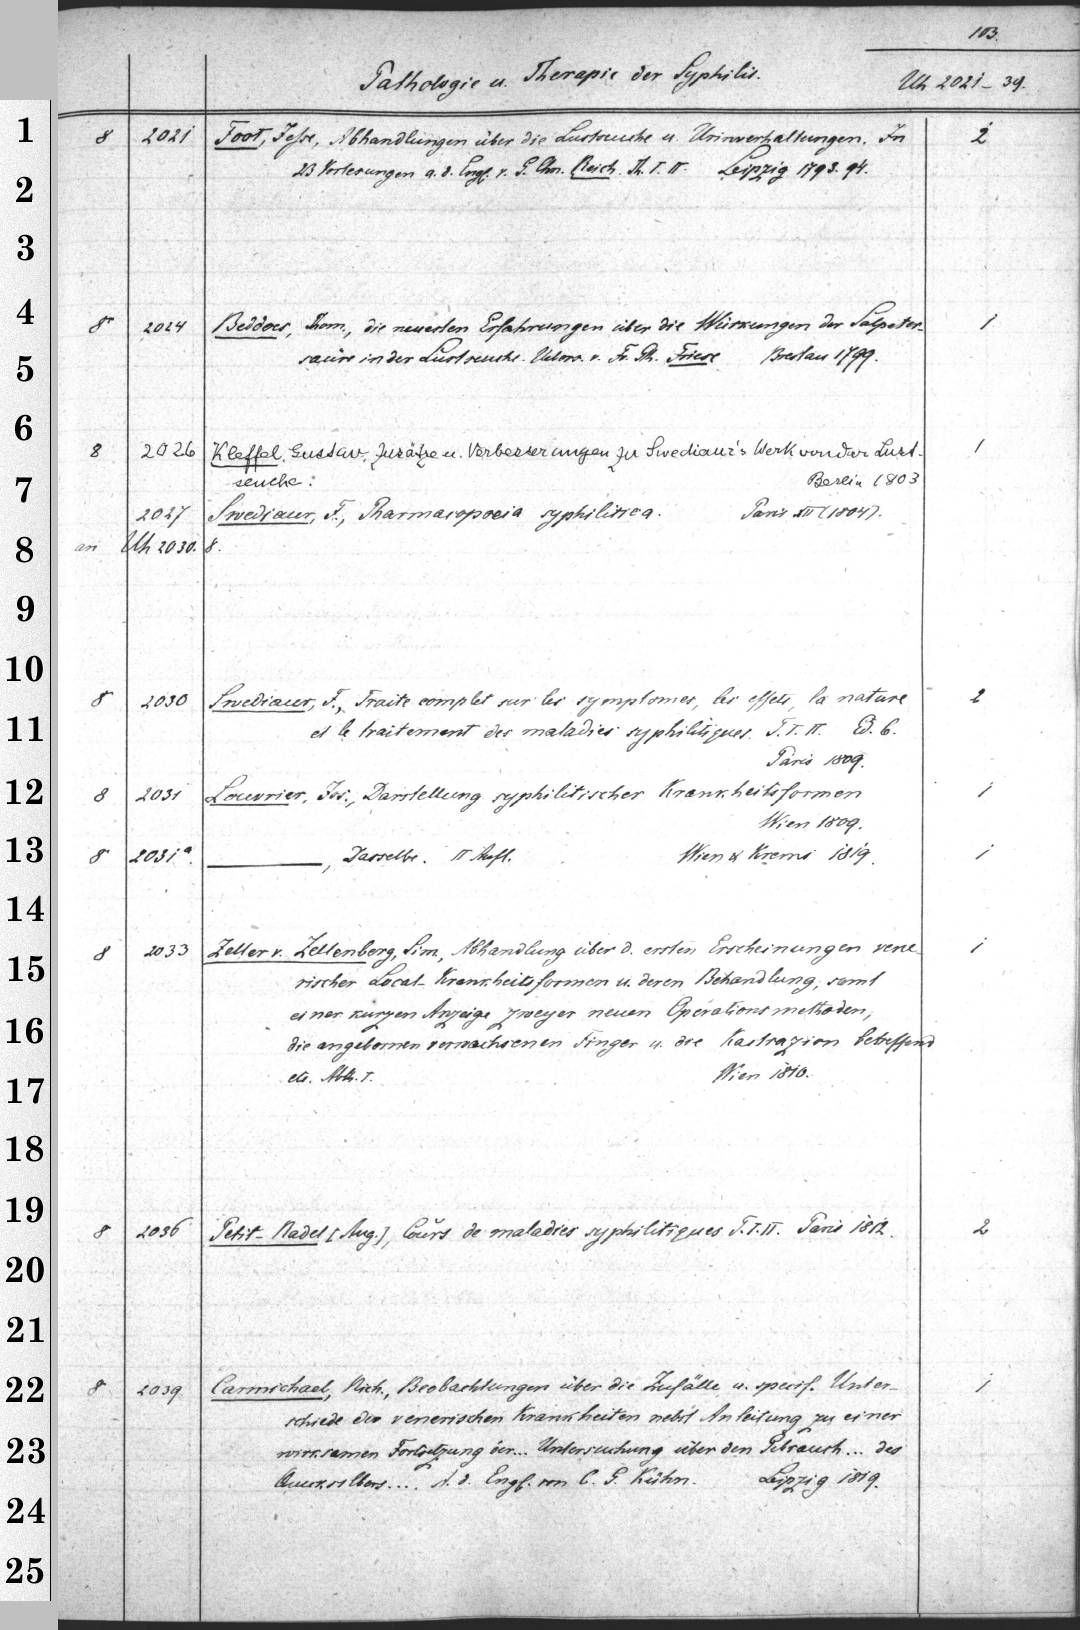 103.
Pathologie u. Therapie der Syphilis.
Uh 2021 - 39.
1 8 2021 Foot, Jesse, Abhandlungen über die Lustseuche u. Urinverhaltungen. In 2
2 23 Vorlesungen a. d. Engl. v. G. Chn. Reich. Th. I. II. Leipzig 1793. 94.
3
4 8 2024 Beddoes, Thom., die neuesten Erfahrungen über die Wirkungen der Salpeter- 1
5 säure in der Lustseuche. Uebers. v. Fr. Th. Friese Breslau 1799.
6 8 2026 Kleffel, Gustav, Zusätze u. Verbesserungen zu Swediaur's Werk von der Lust- 1
7 seuche: Berlin 1803
2027 Swediaur, F., Pharmacopoeia syphilitica. Paris XII (1804).
8 an Uh 2030. 8.
9
10 8 2030 Swediaur, F., Traité complet sur les symptomes, les effets, la nature 2
11 et le traitement des maladies syphilitiques. T. I. II. Ed. 6.
Paris 1809.
12 8 2031 Louvrier, Jos., Darstellung syphilitischer Krankheitsformen 1
Wien 1809.
13 8 2031a. ———, Dasselbe. II Aufl. Wien & Krems 1819. 1
14
8 2033 Zeller v. Zellenberg, Sim., Abhandlung über d. ersten Erscheinungen vene- 1
15 rischer Local-Krankheitsformen u. deren Behandlung, samt
16 einer kurzen Anzeige zweyer neuen Operationsmethoden,
die angebornen verwachsenen Finger u. die Kastrazion betreffend
17 etc. Abth. I. Wien 1810.
18
19 8 2036 Petit-Radel [Aug.], Cours de maladies syphilitiques T. I. II. Paris 1812. 2
20
21
22 8 2039 Carmichael, Rich., Beobachtungen über die Zufälle u. specif. Unter- 1
schiede der venerischen Krankheiten nebst Anleitung zu einer
23 wirksamen Fortsetzung der... Untersuchung über den Gebrauch... des
24 Quecksilbers.... A. d. Engl. von C. G. Kühn. Leipzig 1819.
25